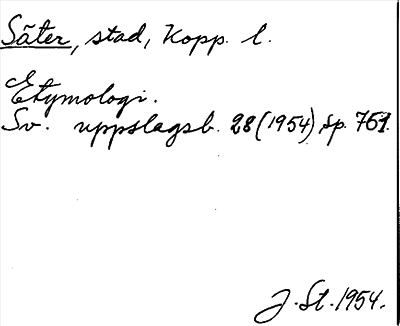 Säter, stad, Kopp. l.
Etymologi.
Sv. uppslagsb. 28 (1954) sp. 751.
J. St. 1954.